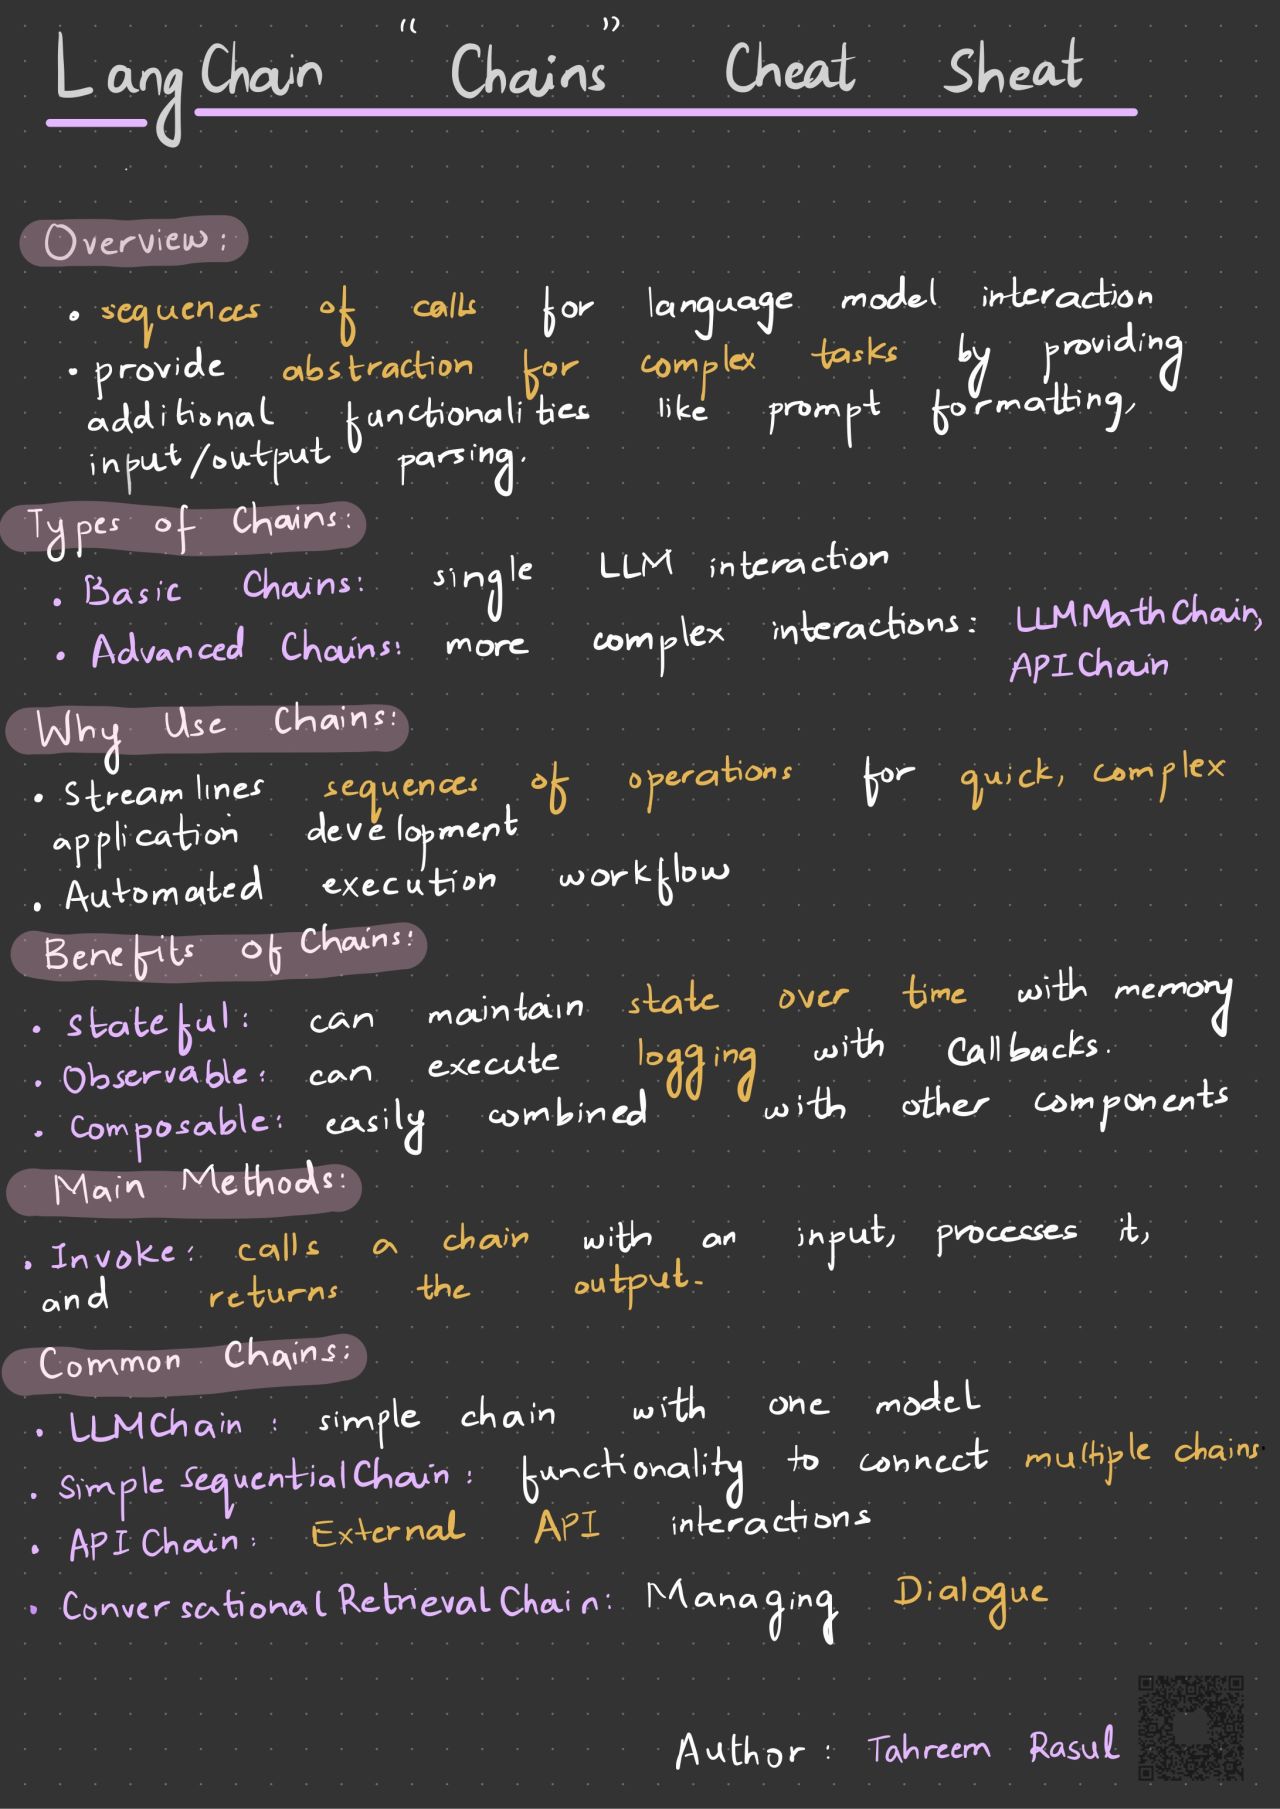 LangChain "Chains" Cheat Sheat
Overview:
• sequences of calls for language model interaction
• provide abstraction for complex tasks by providing
additional functionalities like prompt formatting,
input/output parsing.
Types of Chains:
• Basic Chains: single LLM interaction
• Advanced Chains: more complex interactions: LLMMathChain,
APIChain
Why Use Chains:
• Streamlines sequences of operations for quick, complex
application development
• Automated execution workflow
Benefits of Chains:
• Stateful: can maintain state over time with memory
• Observable: can execute logging with Callbacks.
• Composable: easily combined with other components
Main Methods:
• Invoke: calls a chain with an input, processes it,
and returns the output.
Common Chains:
• LLMChain: simple chain with one model
• SimpleSequentialChain: functionality to connect multiple chains.
• APIChain: External API interactions
• ConversationalRetrievalChain: Managing Dialogue
Author: Tahreem Rasul